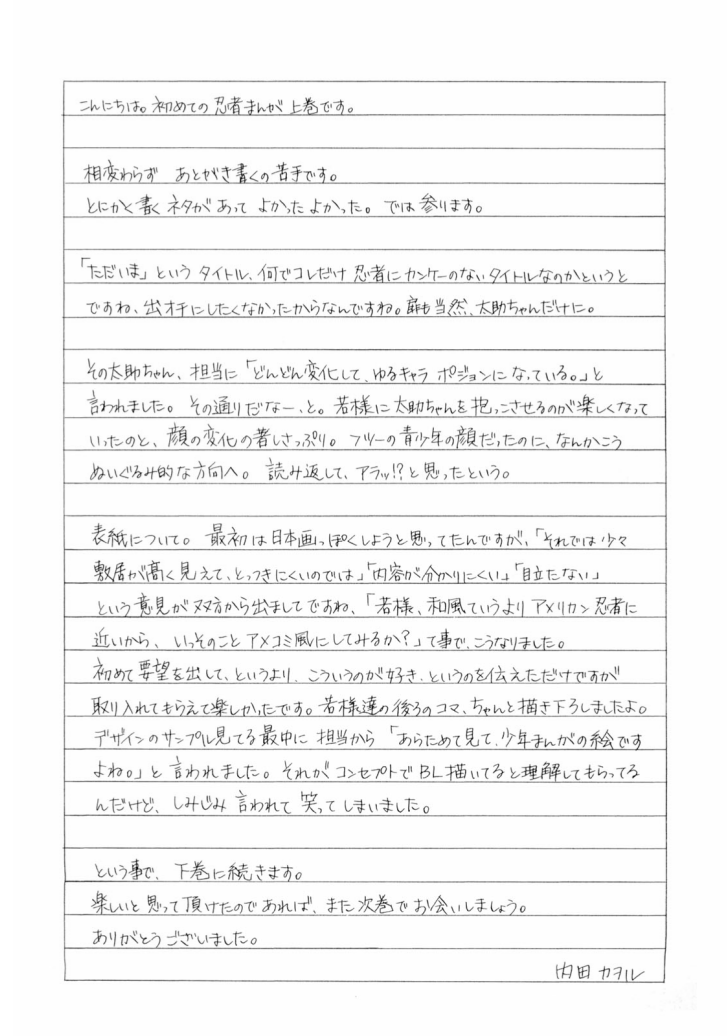 こんにちは。初めての忍者まんが上巻です。
相変わらず あとがき書くの苦手です。
とにかく書くネタがあって よかったよかった。では参ります。
「ただいま」という タイトル、何でコレだけ 忍者にカンケーのないタイトルなのかというと
ですね、出オチにしたくなかったからなんですね。扉も当然、太助ちゃんだけに。
その太助ちゃん、担当に「どんどん変化して、ゆるキャラ ポジションになっている。」と
言われました。その通りだなー、と。若様に太助ちゃんを抱っこさせるのが楽しくなって
いったのと、顔の変化の著しさっぷり。フツーの青少年の顔だったのに、なんかこう
ぬいぐるみ的な方向へ。 読み返して、アラッ!?と思ったという。
表紙について。 最初は日本画っぽくしようと思ってたんですが、「それでは少々
敷居が高く見えて、とっつきにくいのでは」「内容が分かりにくい」「目立たない」
という意見が双方から出ましてですね、「若様、和風ていうよりアメリカン忍者に
近いから、いっそのこと アメコミ風にしてみるか?」て事で、こうなりました。
初めて要望を出して、というより、こういうのが好き、というのを伝えただけですが
取り入れてもらえて楽しかったです。若様達の後ろのコマ、ちゃんと描き下ろしましたよ。
デザインのサンプル見てる最中に 担当から 「あらためて見て、少年まんがの絵です
よね。」と 言われました。それがコンセプトでBL描いてると理解してもらってる
んだけど、しみじみ言われて 笑ってしまいました。
という事で、下巻に続きます。
楽しいと思って頂けたのであれば、また次巻でお会いしましょう。
ありがとうございました。
内田カヲル